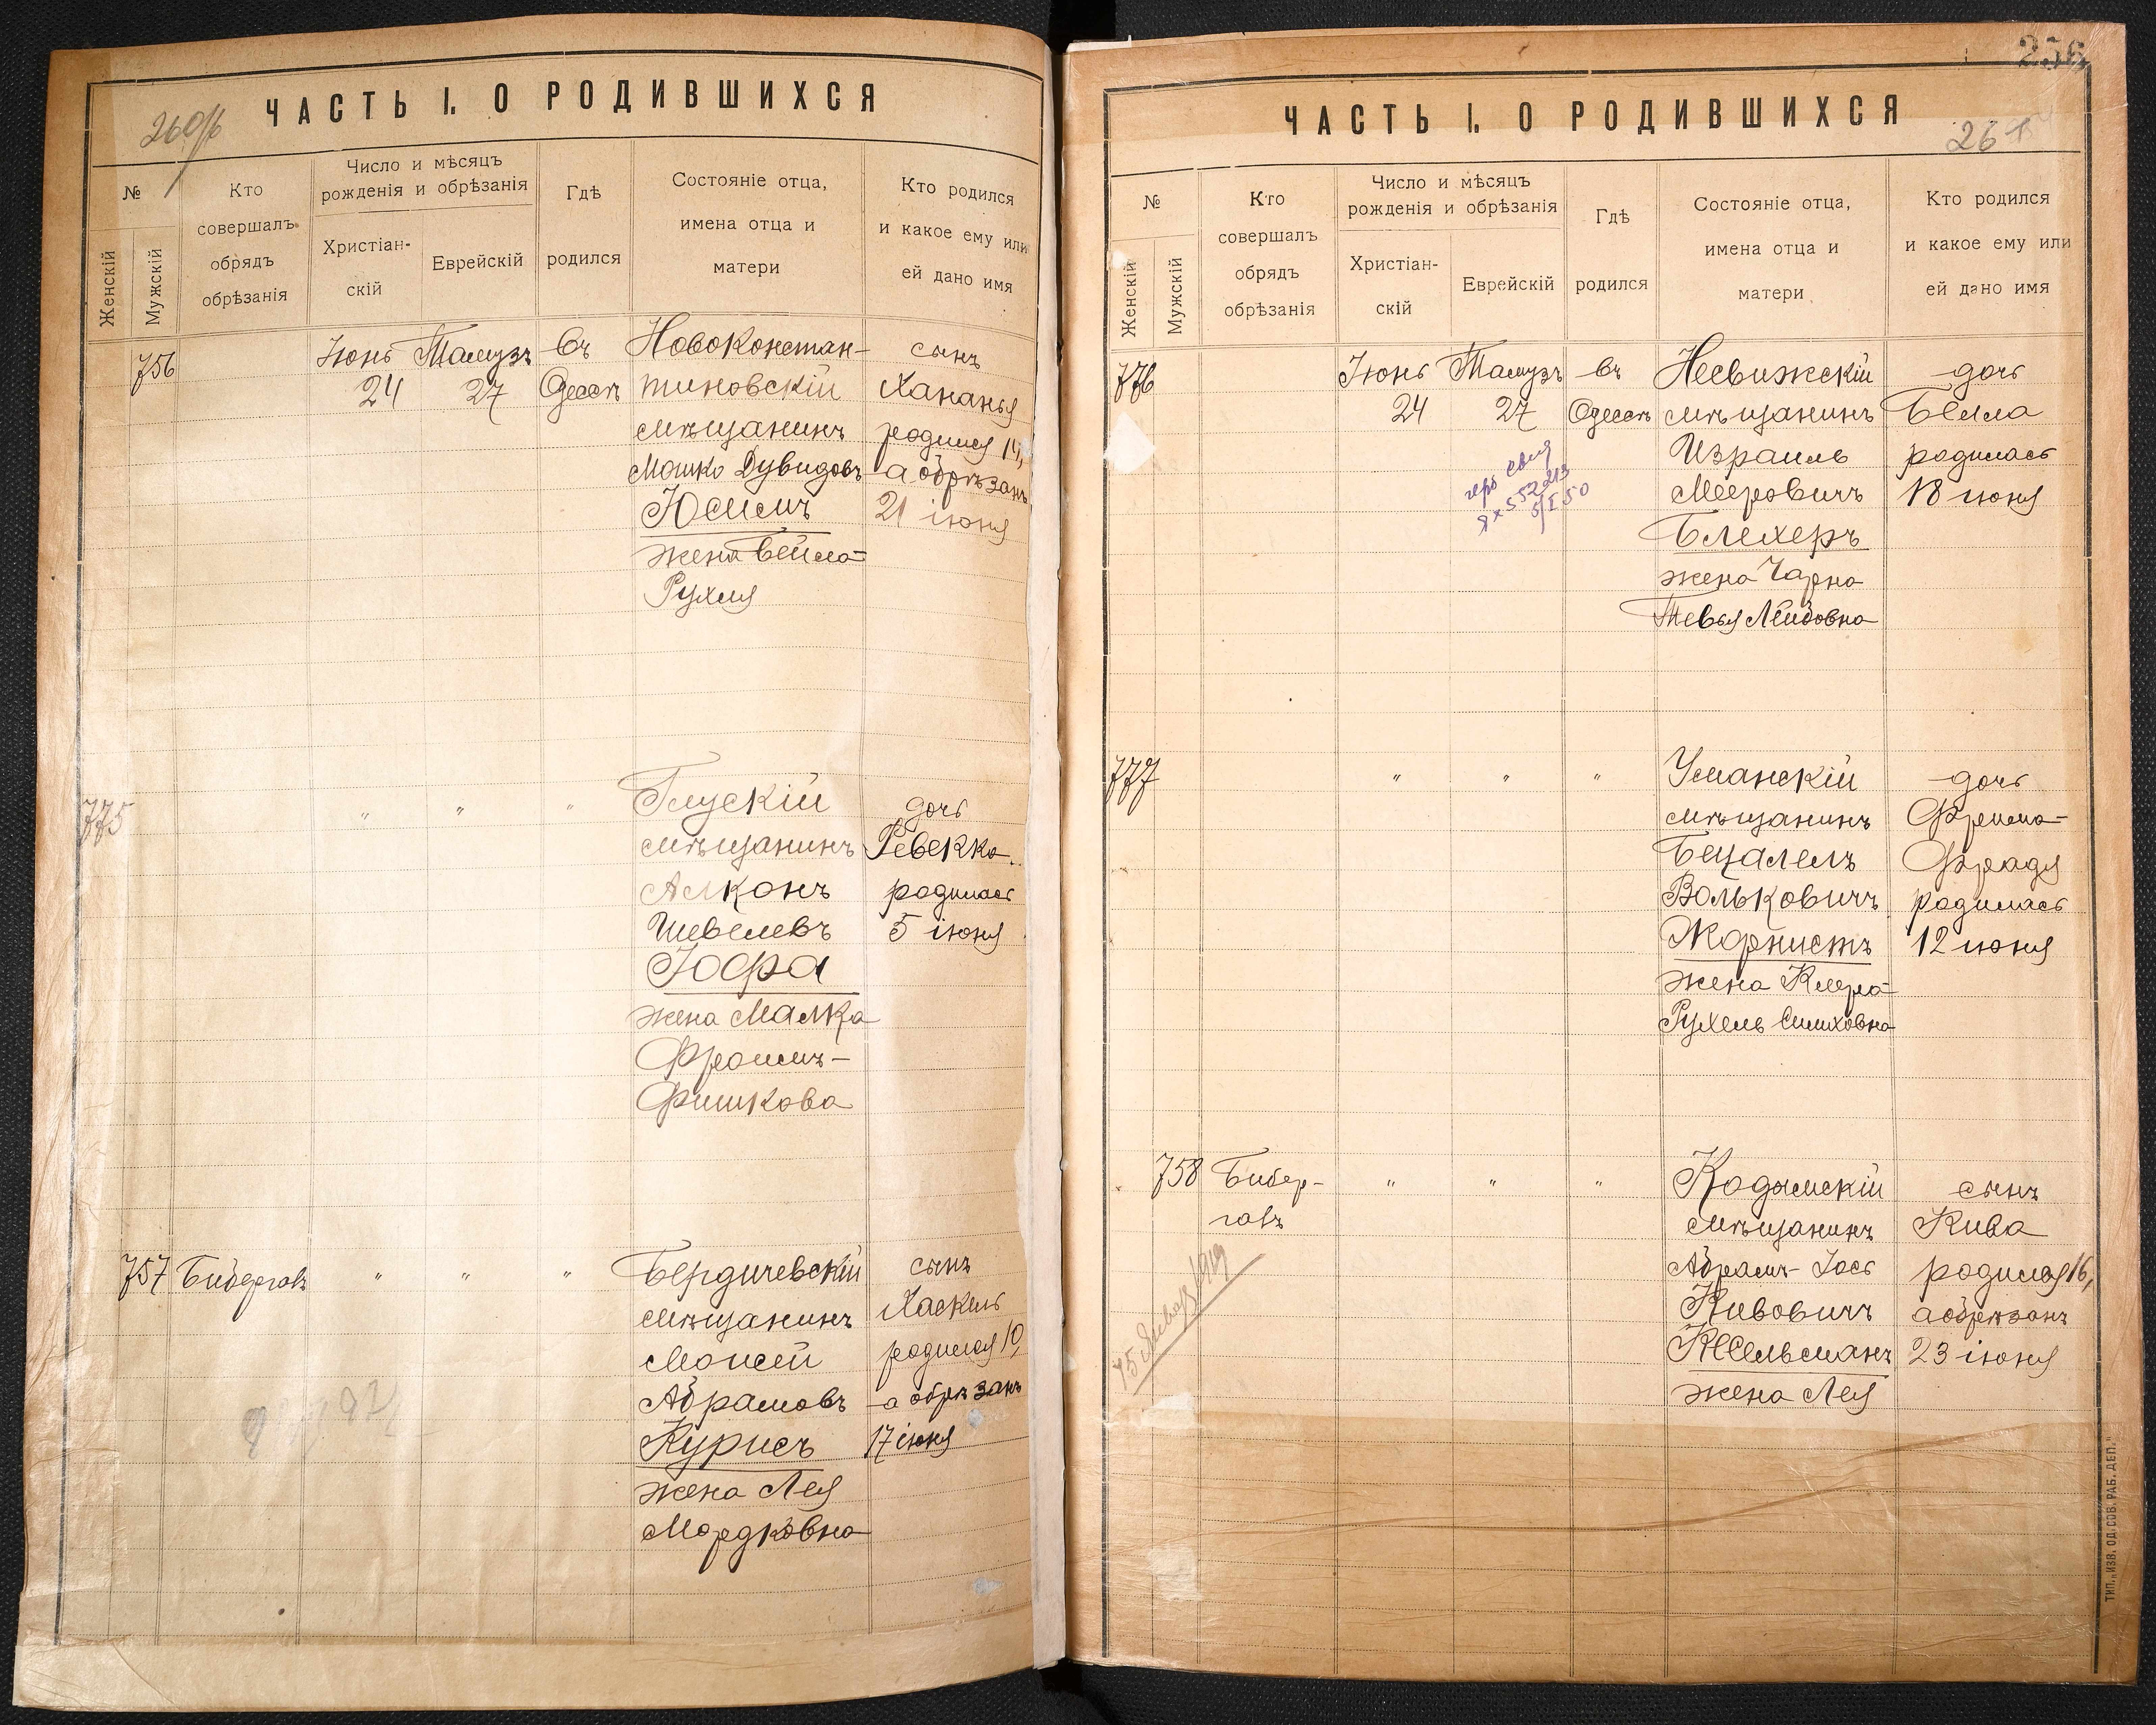 260/б
ЧАСТЬ I. О РОДИВШИХСЯ
№
Женскій
Мужскій
Кто
совершалъ
обрядъ
обрѣзанія
Число и мѣсяцъ
рожденія и обрѣзанія
Христіан-
скій
Еврейскій
Гдѣ
родился
Состояніе отца,
имена отца и
матери
Кто родился
и какое ему или
ей дано имя
756
Іюнь
24
Тамузъ
27
въ
Одессѣ
Новоконстан-
тиновскій
мѣщанинъ
Мошко Дувидовъ
Юсимъ
жена Бейла-
Рухля
сынъ
Хананья
родился 14,
а обрѣзанъ
21 іюня
775
" " "
Глускій
мѣщанинъ
Алконъ
Шевелевъ
Іофра
жена Малка
Фроимъ-
Фишкова
дочь
Ревекка
родилась
5 іюня
757
Бибергалъ
" " "
Бердичевскій
мѣщанинъ
Моисей
Абрамовъ
Курисъ
жена Лея
Мордковна
сынъ
Хаскель
родился 10,
а обрѣзанъ
17 іюня
256
ЧАСТЬ I. О РОДИВШИХСЯ
261
№
Женскій
Мужскій
Кто
совершалъ
обрядъ
обрѣзанія
Число и мѣсяцъ
рожденія и обрѣзанія
Христіан-
скій
Еврейскій
Гдѣ
родился
Состояніе отца,
имена отца и
матери
Кто родился
и какое ему или
ей дано имя
776
Іюнь
24
Тамузъ
27
въ
Одессѣ
Несвижскій
мѣщанинъ
Израиль
Мееровичъ
Блехеръ
жена Чарна
Тевья Лейбовна
дочь
Бейла
родилась
18 іюня
5/I 50
777
" " "
Уманскій
мѣщанинъ
Бецалелъ
Вольковичъ
Жорнистъ
жена Клера-
Рухель Симховна
дочь
Фрейма-
Фрадя
родилась
12 іюня
758
Бибер-
галъ
" " "
Кодымскій
мѣщанинъ
Абрамъ-Іось
Кивовичъ
Кесельманъ
жена Лея
сынъ
Кива
родился 16,
а обрѣзанъ
23 іюня
15 Января 1919
ТИП. „ИЗВ. ОД. СОВ. РАБ. ДЕП."